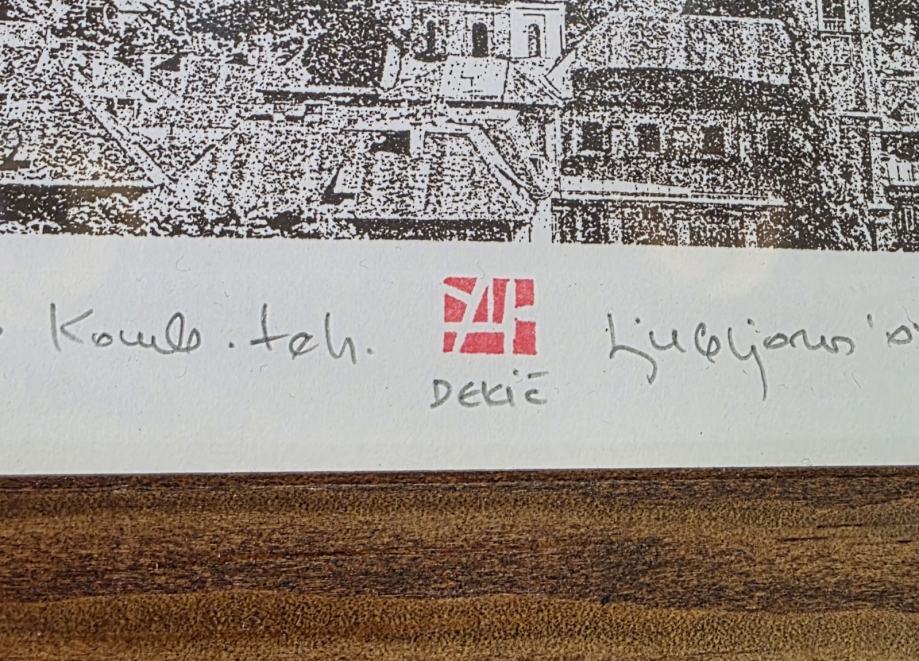 Komb. teh.
DEKIĆ
Ljubljana